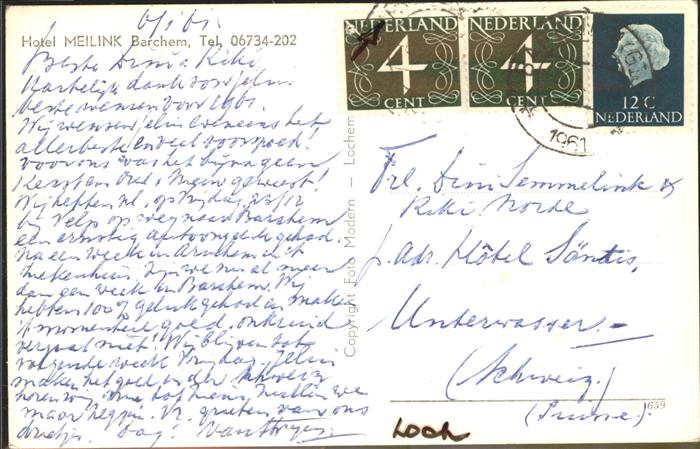 6/1 61.
Hotel MEILINK Barchem, Tel. 06734-202
Beste Dini & Riki,
Hartelijk dank voor jelui
beste wensen voor 1961.
Wij wensen jelui eveneens het
allerbeste en veel voorspoed!
voor ons was het bijna geen
Kerst en Oud & Nieuw geweest!
Wij hebben nl. op vrijdag 23/12
bij Velp op weg naar Barchem
een ernstig auto ongeluk gehad.
Na een week in Arnhem in 't
ziekenhuis, zijn we nu al meer
dan een week in Barchem. Wij
hebben 100% geluk gehad en maken
't momenteel goed. onkruid
vergaat niet! Wij blijven tot
volgende week vrijdag. Jelui
maken het goed in de Schweiz
horen wij. we
maar zeggen. groeten van ons
drietjes. Dag!
NEDERLAND
4
CENT
NEDERLAND
4
CENT
12 C
NEDERLAND
1961
Copyright Foto Modern – Lochem
Frl. Dini Semmelink &
Riki Norde
p. adr. Hôtel Säntis,
Unterwasser.-
(Schweiz.)
(Suisse.)
659
Loch